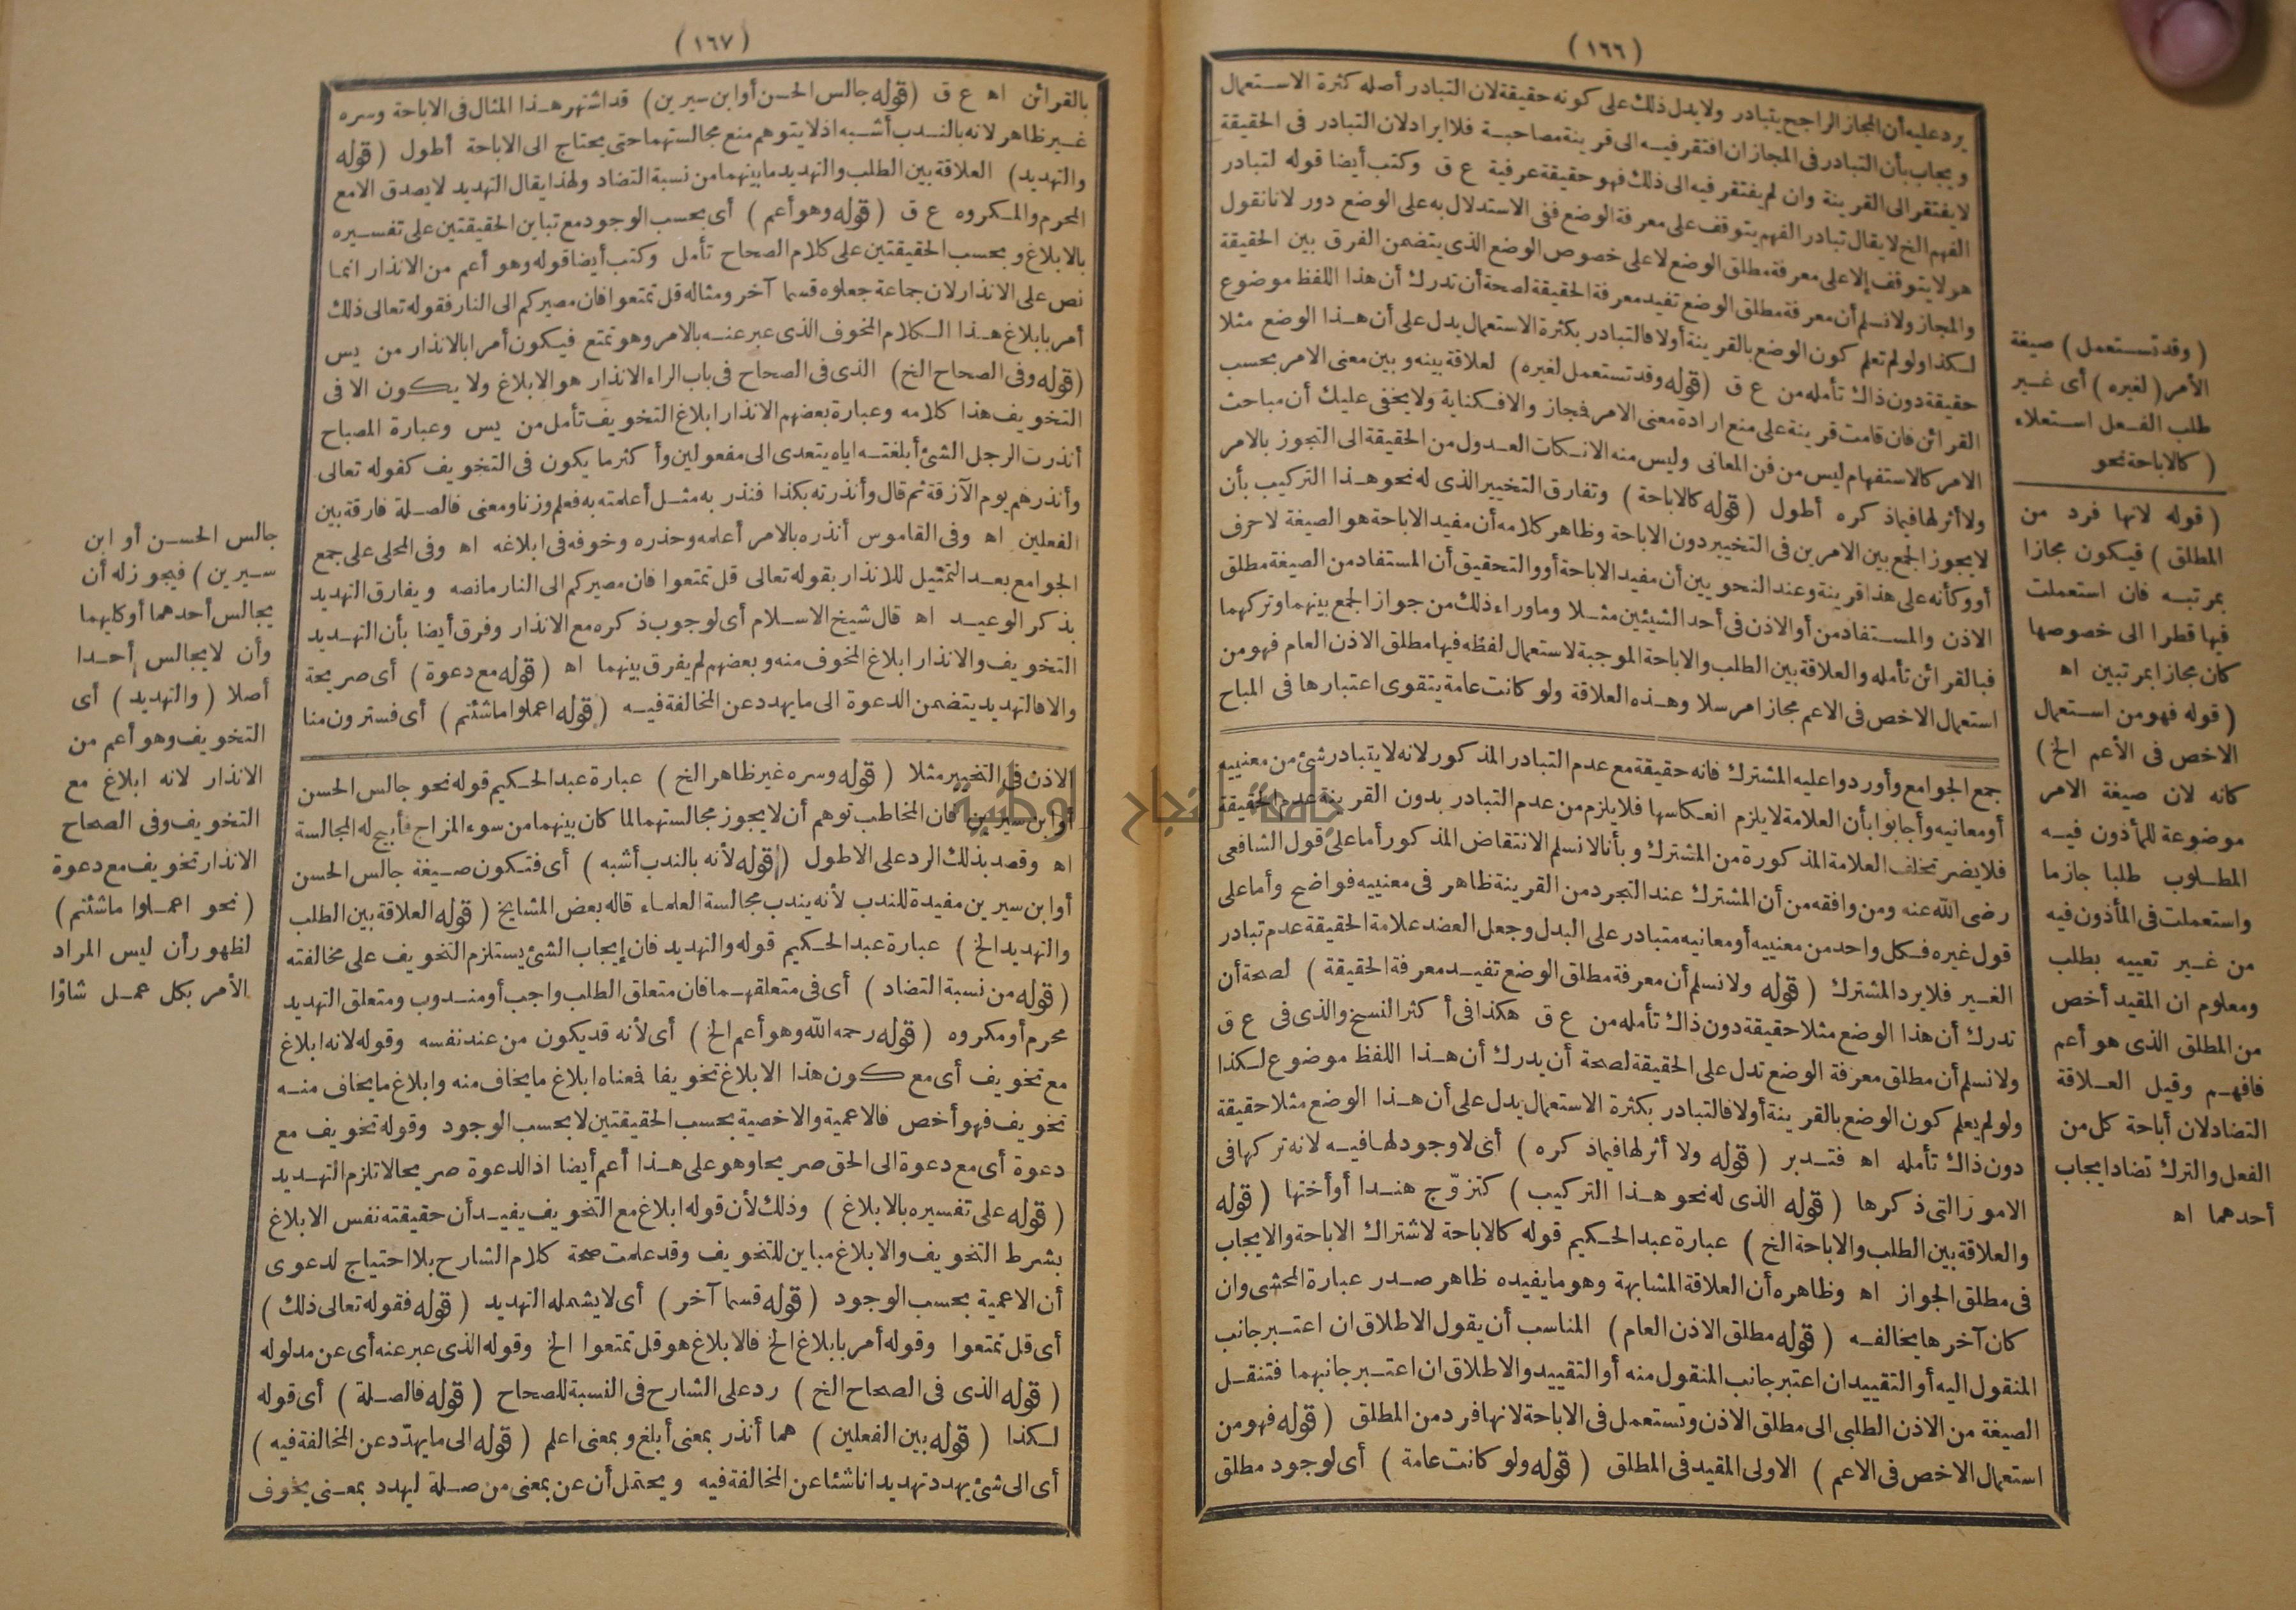 (١٦٦)
يرد عليه أن المجاز الراجح يتبادر ولا يدل ذلك على كونه حقيقة لان التبادر أصله كثرة الاستعمال
ويجاب بأن التبادر فى المجاز ان افتقر فيه الى قرينة مصاحبة فلا ايراد لان التبادر فى الحقيقة
لا يفتقر الى القرينة وان لم يفتقر فيه الى ذلك فهو حقيقة عرفية ع ق وكتب أيضا قوله لتبادر
الفهم الخ لا يقال تبادر الفهم يتوقف على معرفة الوضع ففى الاستدلال به على الوضع دور لانا نقول
هو لا يتوقف إلا على معرفة مطلق الوضع لا على خصوص الوضع الذى يتضمن الفرق بين الحقيقة
والمجاز ولا نسلم أن معرفة مطلق الوضع تفيد معرفة الحقيقة لصحة أن تدرك أن هذا اللفظ موضوع
لكذا ولو لم تعلم كون الوضع بالقرينة أولا فالتبادر بكثرة الاستعمال يدل على أن هذا الوضع مثلا
حقيقة دون ذاك تأمله من ع ق (قوله وقد تستعمل لغيره) لعلاقة بينه وبين معنى الامر بحسب
القرائن فان قامت قرينة على منع ارادة معنى الامر فمجاز والا فكناية ولا يخفى عليك أن مباحث
الامر كالاستفهام ليس من فن المعانى وليس منه الا نكات العدول من الحقيقة الى التجوز بالامر
ولا أثر لها فيما ذكره أطول (قوله كالاباحة) وتفارق التخيير الذى له نحو هذا التركيب بأن
لا يجوز الجمع بين الامرين فى التخيير دون الاباحة وظاهر كلامه أن مفيد الاباحة هو الصيغة لا حرف
أو وكأنه على هذا قرينة وعند النحويين أن مفيد الاباحة أو والتحقيق أن المستفاد من الصيغة مطلق
الاذن والمستفاد من أو الاذن فى أحد الشيئين مثلا وما وراء ذلك من جواز الجمع بينهما وتركهما
فبالقرائن تأمله والعلاقة بين الطلب والاباحة الموجبة لاستعمال لفظه فيها مطلق الاذن العام فهو من
استعمال الاخص فى الاعم مجازا مرسلا وهذه العلاقة ولو كانت عامة يتقوى اعتبارها فى المباح
جمع الجوامع وأوردوا عليه المشترك فانه حقيقة مع عدم التبادر المذكور لانه لا يتبادر شئ من معنييه
أو معانيه وأجابوا بأن العلامة لا يلزم انعكاسها فلا يلزم من عدم التبادر بدون القرينة عدم الحقيقة
فلا يضر تخلف العلامة المذكورة من المشترك وبأنا لا نسلم الانتقاض المذكور أما على قول الشافعى
رضى الله عنه ومن وافقه من أن المشترك عند التجرد من القرينة ظاهر فى معنييه فواضح وأما على
قول غيره فكل واحد من معنييه أو معانيه متبادر على البدل وجعل العضد علامة الحقيقة عدم تبادر
الغير فلا يرد المشترك (قوله ولا نسلم أن معرفة مطلق الوضع تفيد معرفة الحقيقة) لصحة أن
تدرك أن هذا الوضع مثلا حقيقة دون ذاك تأمله من ع ق هكذا فى أكثر النسخ والذى فى ع ق
ولا نسلم أن مطلق معرفة الوضع تدل على الحقيقة لصحة أن يدرك أن هذا اللفظ موضوع لكذا
ولو لم يعلم كون الوضع بالقرينة أولا فالتبادر بكثرة الاستعمال يدل على أن هذا الوضع مثلا حقيقة
دون ذاك تأمله اه فتدبر (قوله ولا أثر لها فيما ذكره) أى لا وجود لها فيه لانه تركها فى
الامور التى ذكرها (قوله الذى له نحو هذا التركيب) كتزوّج هندا أو أختها (قوله
والعلاقة بين الطلب والاباحة الخ) عبارة عبد الحكيم قوله كالاباحة لاشتراك الاباحة والايجاب
فى مطلق الجواز اه وظاهره أن العلاقة المشابهة وهو ما يفيده ظاهر صدر عبارة المحشى وان
كان آخرها يخالفه (قوله مطلق الاذن العام) المناسب أن يقول الاطلاق ان اعتبر جانب
المنقول اليه أو التقييد ان اعتبر جانب المنقول منه أو التقييد والاطلاق ان اعتبر جانبهما فتنقل
الصيغة من الاذن الطلبى الى مطلق الاذن وتستعمل فى الاباحة لانها فرد من المطلق (قوله فهو من
استعمال الاخص فى الاعم) الاولى المقيد فى المطلق (قوله ولو كانت عامة) أى لوجود مطلق
(وقد تستعمل) صيغة
الأمر (لغيره) أى غير
طلب الفعل استعلاء
(كالاباحة نحو
(قوله لانها فرد من
المطلق) فيكون مجازا
بمرتبه فان استعملت
فيها نظرا الى خصوصها
كان مجازا بمرتبين اه
(قوله فهو من استعمال
الاخص فى الأعم الخ)
كانه لان صيغة الامر
موضوعة للمأذون فيه
المطلوب طلبا جازما
واستعملت فى المأذون فيه
من غير تعييه بطلب
ومعلوم ان المقيد أخص
من المطلق الذى هو أعم
فافهم وقيل العلاقة
التضاد لان أباحة كل من
الفعل والترك تضاد ايجاب
أحدهما اه
(١٦٧)
بالقرائن اه ع ق (قوله جالس الحسن أو ابن سيرين) قد اشتهر هذا المثال فى الاباحة وسره
غير ظاهر لانه بالندب أشبه اذ لا يتوهم منع مجالستهما حتى يحتاج الى الاباحة أطول (قوله
والتهديد) العلاقة بين الطلب والتهديد ما بينهما من نسبة التضاد ولهذا يقال التهديد لا يصدق الا مع
المحرم والمكروه ع ق (قوله وهو أعم) أى بحسب الوجود مع تباين الحقيقتين على تفسيره
بالابلاغ وبحسب الحقيقتين على كلام الصحاح تأمل وكتب أيضا قوله وهو أعم من الانذار انما
نص على الانذار لان جماعة جعلوه قسما آخر ومثاله قل تمتعوا فان مصيركم الى النار فقوله تعالى ذلك
أمر بابلاغ هذا الكلام المخوف الذى عبر عنه بالامر وهو تمتع فيكون أمرا بالانذار من يس
(قوله وفى الصحاح الخ) الذى فى الصحاح فى باب الراء الانذار هو الابلاغ ولا يكون الا فى
التخويف هذا كلامه وعبارة بعضهم الانذار ابلاغ التخويف تأمل من يس وعبارة المصباح
أنذرت الرجل الشئ أبلغته اياه يتعدى الى مفعولين وأكثر ما يكون فى التخويف كقوله تعالى
وأنذرهم يوم الآزفة ثم قال وأنذرته بكذا فنذر به مثل أعلمته به فعلم وزنا ومعنى فالصلة فارقة بين
الفعلين اه وفى القاموس أنذره بالامر أعلمه وحذره وخوفه فى ابلاغه اه وفى المحلى على جمع
الجوامع بعد التمثيل للانذار بقوله تعالى قل تمتعوا فان مصيركم الى النار ما نصه ويفارق التهديد
بذكر الوعيد اه قال شيخ الاسلام أى لوجوب ذكره مع الانذار وفرق أيضا بأن التهديد
التخويف والانذار ابلاغ المخوف منه وبعضهم لم يفرق بينهما اه (قوله مع دعوة) أى صريحة
والا فالتهديد يتضمن الدعوة الى ما يهدد عن المخالفة فيه (قوله اعملوا ما شئتم) أى فسترون منا
الاذن فى التخيير مثلا (قوله وسره غير ظاهر الخ) عبارة عبد الحكيم قوله نحو جالس الحسن
أو ابن سيرين فان المخاطب توهم أن لا يجوز مجالستهما لما كان بينهما من سوء المزاج فأبيح له المجالسة
اه وقصد بذلك الرد على الاطول (قوله لأنه بالندب أشبه) أى فتكون صيغة جالس الحسن
أو ابن سيرين مفيدة للندب لأنه يندب مجالسة العلماء قاله بعض المشايخ (قوله العلاقة بين الطلب
والتهديد الخ) عبارة عبد الحكيم قوله والتهديد فان إيجاب الشئ يستلزم التخويف على مخالفته
(قوله من نسبة التضاد) أى فى متعلقهما فان متعلق الطلب واجب أو مندوب ومتعلق التهديد
محرم أو مكروه (قوله رحمه الله وهو أعم الخ) أى لأنه قد يكون من عند نفسه وقوله لانه ابلاغ
مع تخويف أى مع كون هذا الابلاغ تخويفا فمعناه ابلاغ ما يخاف منه وابلاغ ما يخاف منه
تخويف فهو أخص فالاعمية والاخصية بحسب الحقيقتين لا بحسب الوجود وقوله تخويف مع
دعوة أى مع دعوة الى الحق صريحا وهو على هذا أعم أيضا اذ الدعوة صريحا لا تلزم التهديد
(قوله على تفسيره بالابلاغ) وذلك لأن قوله ابلاغ مع التخويف يفيد أن حقيقته نفس الابلاغ
بشرط التخويف والابلاغ مباين للتخويف وقد علمت صحة كلام الشارح بلا احتياج لدعوى
أن الاعمية بحسب الوجود (قوله قسما آخر) أى لا يشمله التهديد (قوله فقوله تعالى ذلك)
أى قل تمتعوا وقوله أمر بابلاغ الخ فالابلاغ هو قل تمتعوا الخ وقوله الذى عبر عنه أى عن مدلوله
(قوله الذى فى الصحاح الخ) رد على الشارح فى النسبة للصحاح (قوله فالصلة) أى قوله
لكذا (قوله بين الفعلين) هما أنذر بمعنى أبلغ وبمعنى اعلم (قوله الى ما يهدّد عن المخالفة فيه)
أى الى شئ يهدد تهديدا ناشئا عن المخالفة فيه ويحتمل أن عن بمعنى من صلة ليهدد بمعنى يخوف
جالس الحسن أو ابن
سيرين) فيجوز له أن
يجالس أحدهما أو كليهما
وأن لا يجالس أحدا
أصلا (والتهديد) أى
التخويف وهو أعم من
الانذار لانه ابلاغ مع
التخويف وفى الصحاح
الانذار تخويف مع دعوة
(نحو اعملوا ما شئتم)
لظهور أن ليس المراد
الأمر بكل عمل شاؤا
جامعة النجاح الوطنية